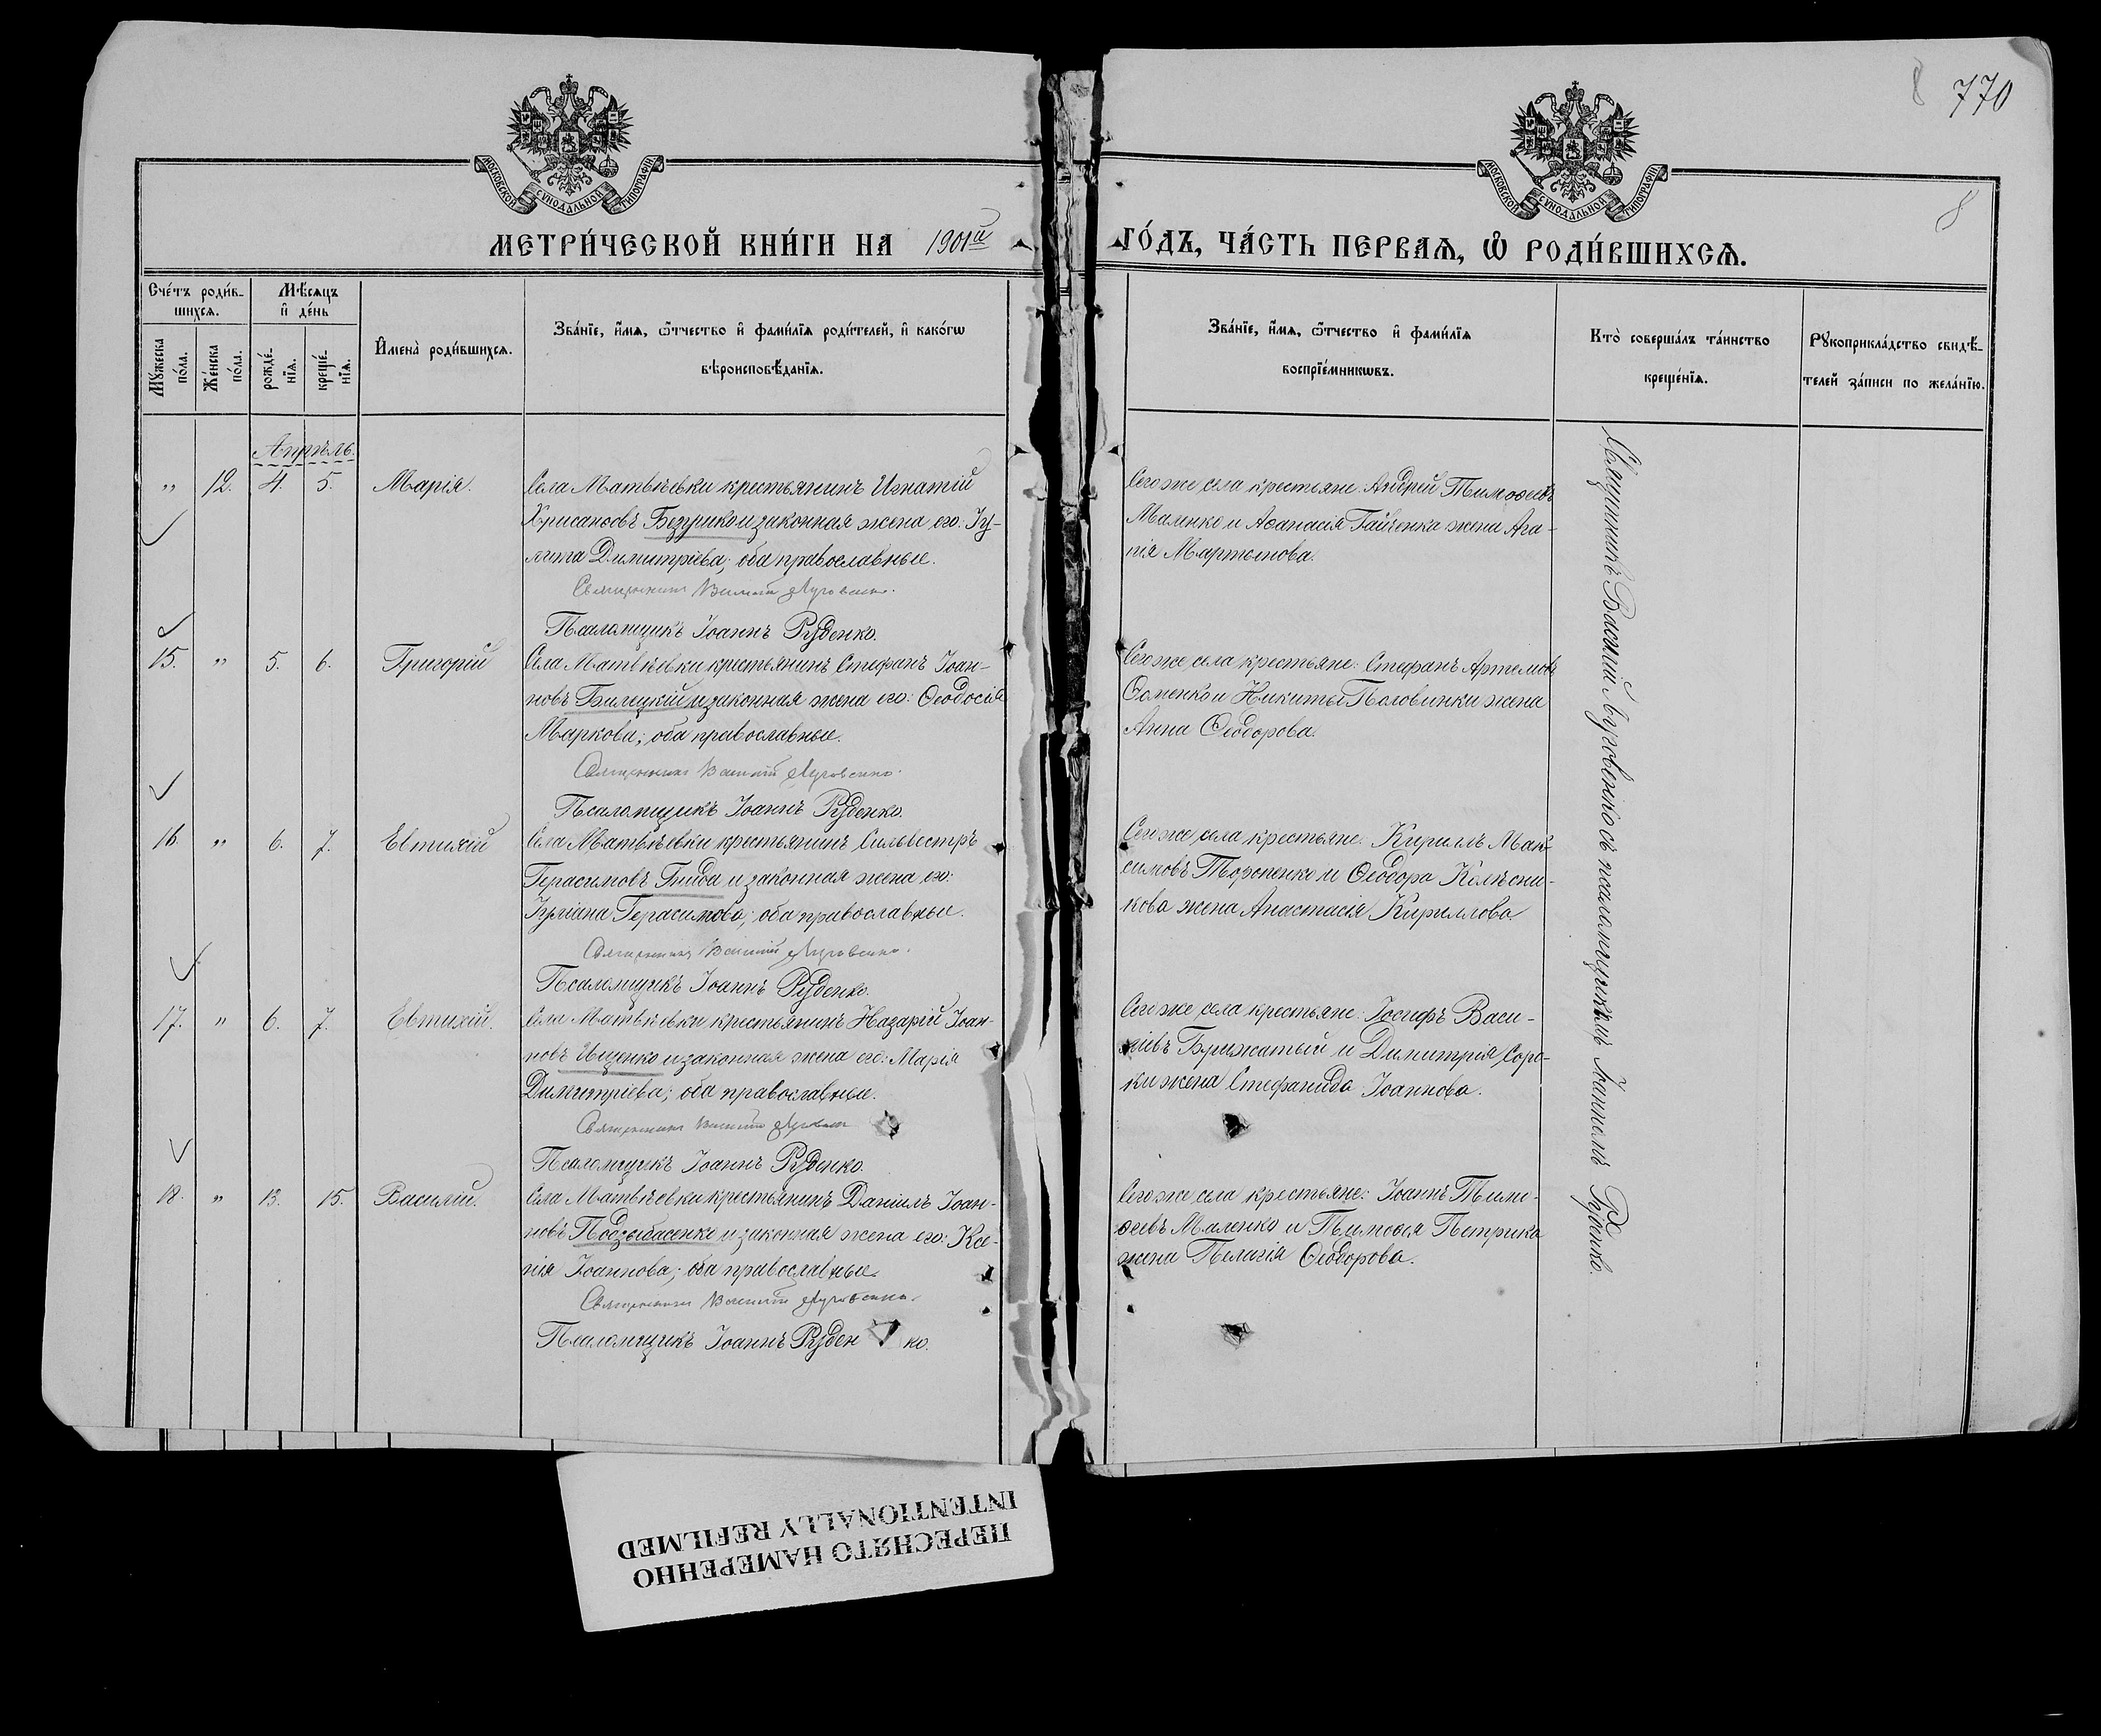 8 770
МОСКОВСКОЙ СѴНОДАЛЬНОЙ ТИПОГРАФІИ
МОСКОВСКОЙ СѴНОДАЛЬНОЙ ТИПОГРАФІИ
8
МЕТРИ́ЧЕСКОЙ КНИ́ГИ НА 1901й
ГО́ДЪ, ЧА́СТЬ ПЕРВАѦ, Ѽ РОДИ́ВШИХСѦ.
Сче́тъ роди́в-
шихсѧ.
Мꙋ́жеска по́ла.
Же́нска по́ла.
Мѣ́сѧцъ
и҆ де́нь
рожде́-
нїѧ.
креще́-
нїѧ.
И҆мена̀ роди́вшихсѧ.
Зва́нїе, и҆́мѧ, ѻ҆́тчество и҆ фами́лїѧ роди́телей, и҆ како́гѡ
вѣроисповѣ́данїѧ.
Зва́нїе, и҆́мѧ, ѻ҆́тчество и҆ фами́лїѧ
воспрїе́мникѡвъ.
Кто̀ соверша́лъ та́инство
креще́нїѧ.
Рꙋкоприкла́дство свидѣ́-
телей за́писи по жела́нїю.
Апрѣль.
" 12. 4. 5. Марія.
Села Матвѣевки крестьянинъ Игнатій
Хрисанѳовъ Безурико и законная жена его: Іу-
лита Димитріева; оба православные.
Священникъ Василій Луговенко.
Псаломщикъ Іоаннъ Руденко.
Сего же села крестьяне: Андрей Тимоѳеевъ
Маленко и Аѳанасія Гайченка жена Ага-
пія Мартынова.
15. " 5. 6. Григорій
Села Матвѣевки крестьянинъ Стефанъ Іоан-
новъ Билецкій и законная жена его: Ѳеодосія
Маркова; оба православные.
Священникъ Василій Луговенко.
Псаломщикъ Іоаннъ Руденко.
Сего же села крестьяне: Стефанъ Артемовъ
Ѳоменко и Никиты Половинки жена
Анна Ѳеодорова.
16. " 6. 7. Евтихій
Села Матвѣевки крестьянинъ Сильвестръ
Герасимовъ Гнида и законная жена его:
Іуліана Герасимова; оба православные.
Священникъ Василій Луговенко.
Псаломщикъ Іоаннъ Руденко.
Сего же села крестьяне: Кириллъ Мак-
симовъ Торопенко и Ѳеодора Колѣсни-
кова жена Анастасія Кириллова
17. " 6. 7. Евтихій.
Села Матвѣевки крестьянинъ Назарій Іоан-
новъ Ищенко и законная жена его: Марія
Димитріева; оба православные.
Священникъ Василій Луговенко
Псаломщикъ Іоаннъ Руденко.
Сего же села крестьяне: Іосифъ Васи-
ліевъ Брижатый и Димитрія Соро-
ки жена Стефанида Іоаннова.
18. " 13. 15. Василій.
Села Матвѣевки крестьянинъ Даніилъ Іоан-
новъ Подзыбасенко и законная жена его: Ксе-
нія Іоаннова; оба православные.
Священникъ Василій Луговенко.
Псаломщикъ Іоаннъ Руден ко.
Сего же села крестьяне: Іоаннъ Тимо-
ѳеевъ Маленко и Тимоѳея Петрика
жена Пелагія Ѳеодорова.
Священникъ Василій Луговенко съ псаломщикомъ Іоанномъ Руденко.
ПЕРЕСНЯТО НАМЕРЕННО
INTENTIONALLY REFILMED